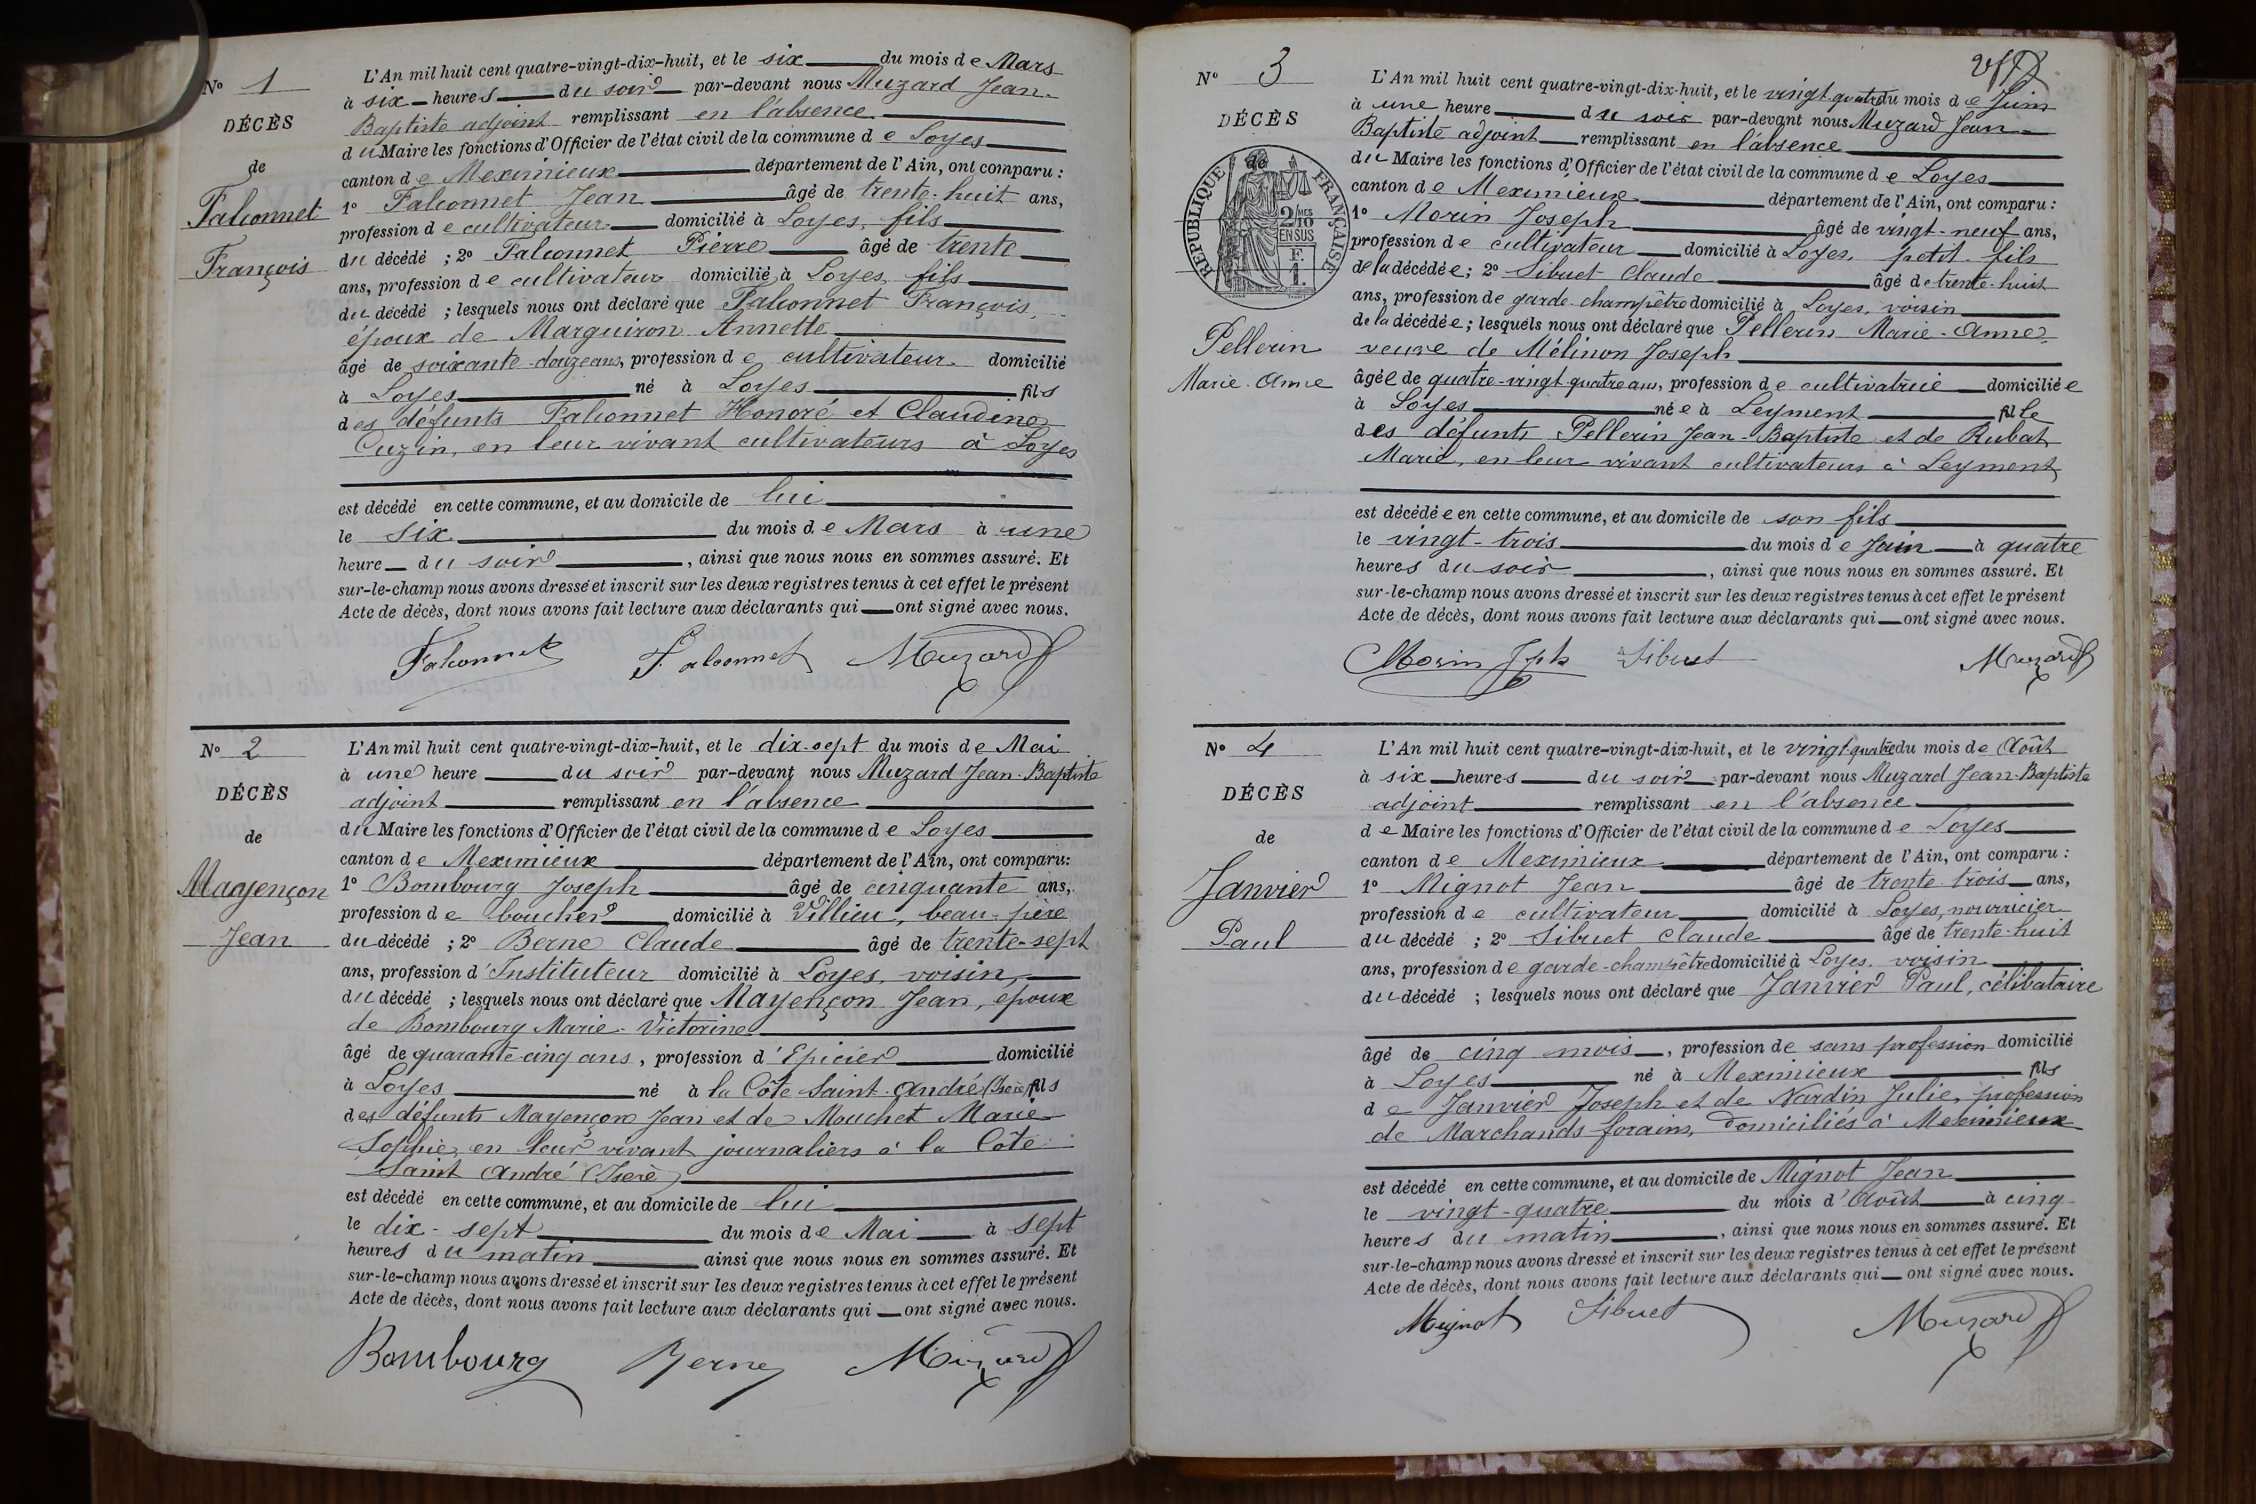 N° 1
DÉCÈS
de
Falconnet
François
L'An mil huit cent quatre-vingt-dix-huit, et le six du mois de Mars
à six heures du soir par-devant nous Muzard Jean-
Baptiste adjoint remplissant en l'absence
du Maire les fonctions d'Officier de l'état civil de la commune de Loyes
canton de Meximieux département de l'Ain, ont comparu :
1° Falconnet Jean âgé de trente-huit ans,
profession de cultivateur domicilié à Loyes, fils
du décédé ; 2° Falconnet Pierre âgé de trente
ans, profession de cultivateur domicilié à Loyes, fils
du décédé ; lesquels nous ont déclaré que Falconnet François,
époux de Marguiron Annette
âgé de soixante-douze ans, profession de cultivateur domicilié
à Loyes né à Loyes fils
des défunts Falconnet Honoré et Claudine
Cuzin, en leur vivant cultivateurs à Loyes
est décédé en cette commune, et au domicile de lui
le six du mois de Mars à une
heure du soir, ainsi que nous nous en sommes assuré. Et
sur-le-champ nous avons dressé et inscrit sur les deux registres tenus à cet effet le présent
Acte de décès, dont nous avons fait lecture aux déclarants qui ont signé avec nous.
Falconnet P. Falconnet Muzard
N° 2
DÉCÈS
de
Mayençon
Jean
L'An mil huit cent quatre-vingt-dix-huit, et le dix-sept du mois de Mai
à une heure du soir par-devant nous Muzard Jean-Baptiste
adjoint remplissant en l'absence
du Maire les fonctions d'Officier de l'état civil de la commune de Loyes
canton de Meximieux département de l'Ain, ont comparu:
1° Bombourg Joseph âgé de cinquante ans,
profession de boucher domicilié à Villieu, beau-père
du décédé ; 2° Berne Claude âgé de trente-sept
ans, profession d'Instituteur domicilié à Loyes, voisin,
du décédé ; lesquels nous ont déclaré que Mayençon Jean, époux
de Bombourg Marie-Victorine
âgé de quarante cinq ans, profession d'Epicier domicilié
à Loyes né à la Côte Saint-André (Isère) fils
des défunts Mayençon Jean et de Mouchet Marie
Sophie, en leur vivant journaliers à la Côte
Saint André (Isère)
est décédé en cette commune, et au domicile de lui
le dix-sept du mois de Mai à sept
heures du matin ainsi que nous nous en sommes assuré. Et
sur-le-champ nous avons dressé et inscrit sur les deux registres tenus à cet effet le présent
Acte de décès, dont nous avons fait lecture aux déclarants qui ont signé avec nous.
Bombourg Berne Muzard
N° 3
DÉCÈS
de
RÉPUBLIQUE FRANÇAISE
2/10 MES
EN SUS
F.
1.
Pellerin
Marie-Anne
L'An mil huit cent quatre-vingt-dix-huit, et le vingt quatre du mois de Juin
à une heure du soir par-devant nous Muzard Jean-
Baptiste adjoint remplissant en l'absence
du Maire les fonctions d'Officier de l'état civil de la commune de Loyes
canton de Meximieux département de l'Ain, ont comparu :
1° Morin Joseph âgé de vingt-neuf ans,
profession de cultivateur domicilié à Loyes, petit-fils
de la décédée ; 2° Sibuet Claude âgé de trente-huit
ans, profession de garde-champêtre domicilié à Loyes, voisin
de la décédée ; lesquels nous ont déclaré que Pellerin Marie-Anne,
veuve de Mélinon Joseph
âgée de quatre-vingt quatre ans, profession de cultivatrice domiciliée
à Loyes née à Leyment fille
des défunts Pellerin Jean-Baptiste et de Rubat
Marie, en leur vivant cultivateurs à Leyment
est décédée en cette commune, et au domicile de son fils
le vingt-trois du mois de Juin à quatre
heures du soir, ainsi que nous nous en sommes assuré. Et
sur-le-champ nous avons dressé et inscrit sur les deux registres tenus à cet effet le présent
Acte de décès, dont nous avons fait lecture aux déclarants qui ont signé avec nous.
Morin Jph Sibuet Muzard
N° 4
DÉCÈS
de
Janvier
Paul
L'An mil huit cent quatre-vingt-dix-huit, et le vingt quatre du mois de Août
à six heures du soir par-devant nous Muzard Jean-Baptiste
adjoint remplissant en l'absence
de Maire les fonctions d'Officier de l'état civil de la commune de Loyes
canton de Meximieux département de l'Ain, ont comparu :
1° Mignot Jean âgé de trente-trois ans,
profession de cultivateur domicilié à Loyes, nourricier
du décédé ; 2° Sibuet Claude âgé de trente-huit
ans, profession de garde-champêtre domicilié à Loyes, voisin
du décédé ; lesquels nous ont déclaré que Janvier Paul, célibataire
âgé de cinq mois, profession de sans profession domicilié
à Loyes né à Meximieux fils
de Janvier Joseph et de Nardin Julie, profession
de Marchands forains, domiciliés à Meximieux
est décédé en cette commune, et au domicile de Mignot Jean
le vingt-quatre du mois d'Août à cinq
heures du matin, ainsi que nous nous en sommes assuré. Et
sur-le-champ nous avons dressé et inscrit sur les deux registres tenus à cet effet le présent
Acte de décès, dont nous avons fait lecture aux déclarants qui ont signé avec nous.
Mignot Sibuet Muzard